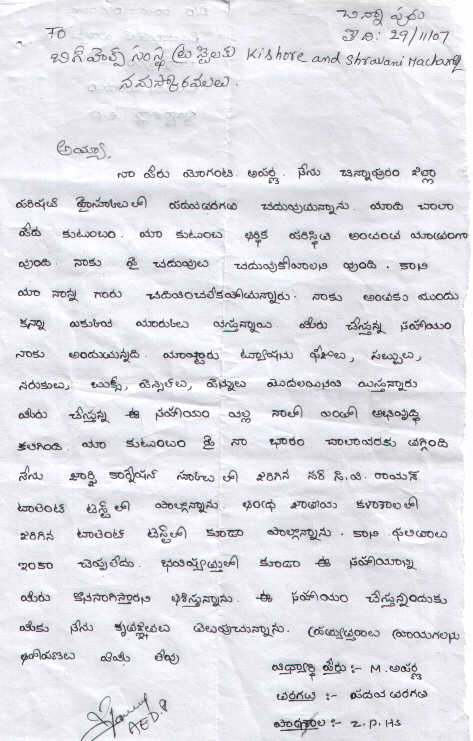 చిన్నాపురం
తేది: 29/11/07
TO
బిగ్ హెల్ప్ సంస్థ Kishore and Shravani
నమస్కారములు.
అయ్యా
నా పేరు మోగంటి. అపర్ణ. నేను చిన్నాపురం జిల్లా
పరిషత్ హైస్కూలులో పదవతరగతి చదువుచున్నాను. మాది చాలా
పేద కుటుంబం. మా కుటుంబ ఆర్థిక పరిస్థితి అంతంత మాత్రంగా
వుంది. నాకు పై చదువులు చదువుకోవాలని వుంది. కాని
మా నాన్న గారు చదివించలేకపోతున్నారు. నాకు అంతకు ముందు
కన్నా మార్కులు వస్తున్నాయి. మీరు చేస్తున్న సహాయం
నాకు అందుచున్నది. మాస్టారు ట్యూషను ఫీజులు, సబ్బులు,
సరుకులు, బుక్స్, పెన్సిల్లు, పెన్నులు మొదలయినవి యిస్తున్నారు
మీరు చేస్తున్న ఈ సహాయం వల్ల నాలో ఎంతో అభివృద్ధి
కలిగింది. మా కుటుంబం పై నా భారం చాలావరకు తగ్గింది
నేను స్కూలు లో జరిగిన సర్ సి.వి. రామన్
టాలెంట్ టెస్ట్ లో పాల్గొన్నాను. ఆంధ్ర జాతీయ కళాశాలలో
జరిగిన టాలెంట్ టెస్ట్ లో కూడా పాల్గొన్నాను. కాని ఫలితాలు
ఇంకా చెప్పలేదు. భవిష్యత్తులో కూడా ఈ సహాయాన్ని
మీరు కొనసాగిస్తారని ఆశిస్తున్నాను. ఈ సహాయం చేస్తున్నందుకు
మీకు నేను కృతజ్ఞతలు తెలుపుచున్నాను.
విద్యార్థి పేరు :- M. అపర్ణ
తరగతి :- పదవ తరగతి
పాఠశాల :- Z.P.HS